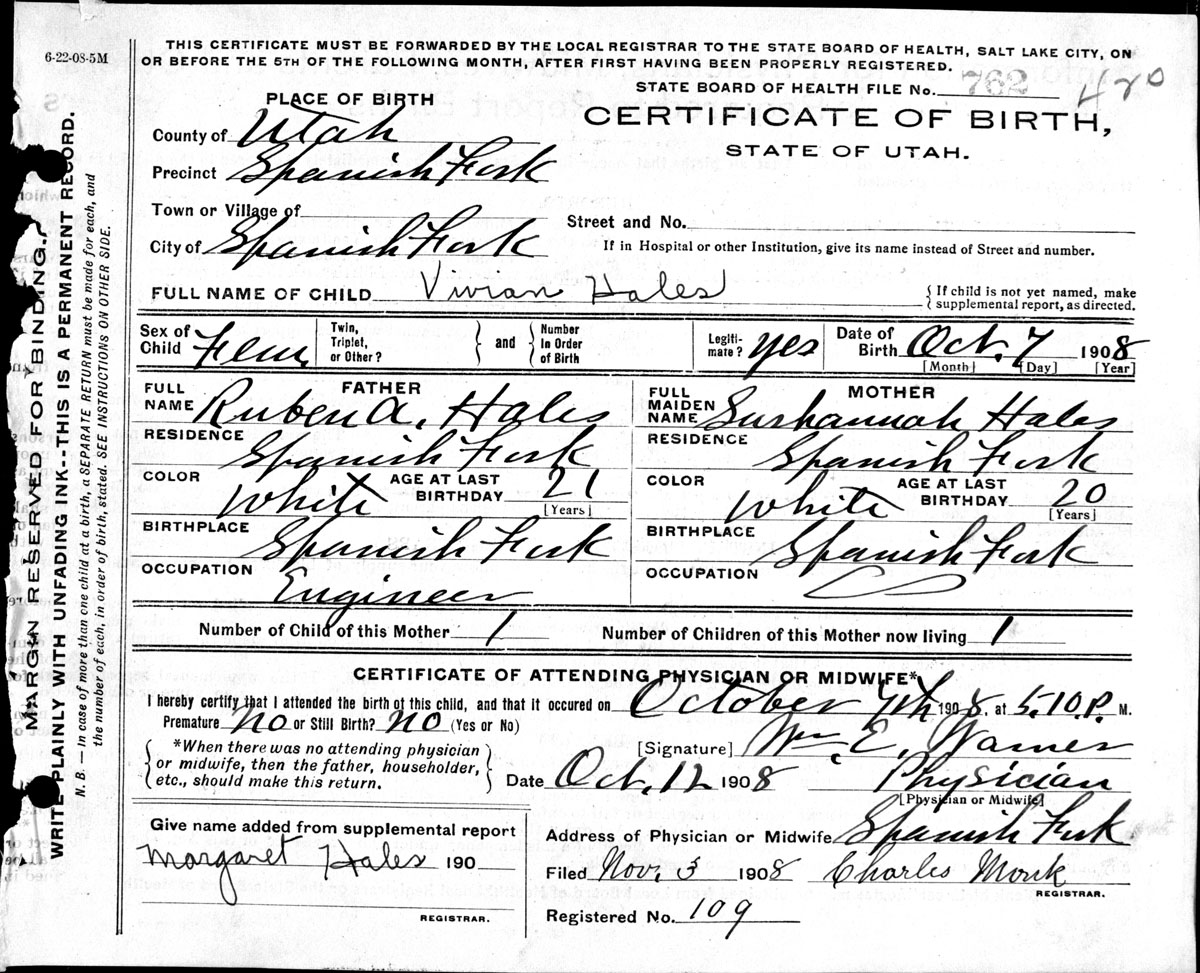 6-22-08-5M
THIS CERTIFICATE MUST BE FORWARDED BY THE LOCAL REGISTRAR TO THE STATE BOARD OF HEALTH, SALT LAKE CITY, ON
OR BEFORE THE 5TH OF THE FOLLOWING MONTH, AFTER FIRST HAVING BEEN PROPERLY REGISTERED.
STATE BOARD OF HEALTH FILE No. 762
420
PLACE OF BIRTH
CERTIFICATE OF BIRTH,
STATE OF UTAH.
County of Utah
Precinct Spanish Fork
Town or Village of
Street and No.
City of Spanish Fork
If in Hospital or other Institution, give its name instead of Street and number.
FULL NAME OF CHILD Vivian Hales
{ If child is not yet named, make
supplemental report, as directed.
Sex of Child Fem.
Twin, Triplet, or Other?
} and {
Number In Order of Birth
Legiti- mate? yes
Date of Birth Oct. 7 1908
[Month] [Day] [Year]
FATHER
FULL NAME Ruben A. Hales
RESIDENCE Spanish Fork
COLOR White AGE AT LAST BIRTHDAY 21
[Years]
BIRTHPLACE Spanish Fork
OCCUPATION Engineer
MOTHER
FULL MAIDEN NAME Surhannah Hales
RESIDENCE Spanish Fork
COLOR White AGE AT LAST BIRTHDAY 20
[Years]
BIRTHPLACE Spanish Fork
OCCUPATION
Number of Child of this Mother 1
Number of Children of this Mother now living 1
CERTIFICATE OF ATTENDING PHYSICIAN OR MIDWIFE*
I hereby certify that I attended the birth of this child, and that it occured on October 7th 1908. at 5.10.P. M.
Premature no or Still Birth? no (Yes or No)
{ *When there was no attending physician
or midwife, then the father, householder,
etc., should make this return. }
[Signature] Wm. E. Warner
Date Oct. 12 1908 Physician
[Physician or Midwife]
Give name added from supplemental report
Margaret Hales 190
REGISTRAR.
Address of Physician or Midwife Spanish Fork
Filed Nov. 3 1908 Charles Monk
REGISTRAR.
Registered No. 109
MARGIN RESERVED FOR BINDING.
WRITE PLAINLY WITH UNFADING INK--THIS IS A PERMANENT RECORD.
N. B. — In case of more than one child at a birth, a SEPARATE RETURN must be made for each, and
the number of each, in order of birth, stated. SEE INSTRUCTIONS ON OTHER SIDE.